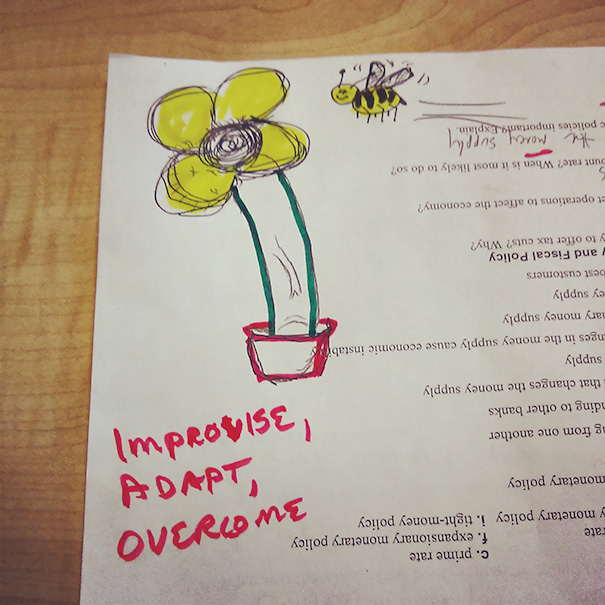 IMPROVISE,
ADAPT,
OVERCOME
c. prime rate
rate f. expansionary monetary policy
monetary policy i. tight-money policy
monetary policy
from one another
to other banks
that changes the money supply
supply
in the money supply cause economic instability
money supply
supply
customers
and Fiscal Policy
to offer tax cuts? Why?
operations to affect the economy?
rate? When is it most likely to do so?
the money supply
policies important? Explain.